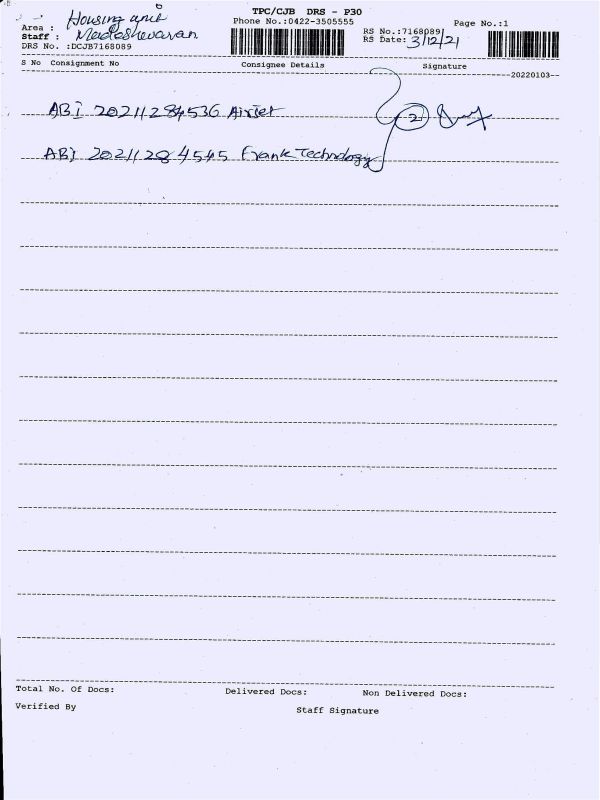 TPC/CJB DRS - P30
Area : Housing unit
Phone No.:0422-3505555
Page No.:1
Staff : Madashwaran
RS No.:7168089
DRS No. :DCJB7168089
RS Date: 3/12/21
S No Consignment No Consignee Details Signature
20220103
ABI 20211284536 Airjet
2
ABI 20211284545 Frank Technology
Total No. Of Docs: Delivered Docs: Non Delivered Docs:
Verified By Staff Signature